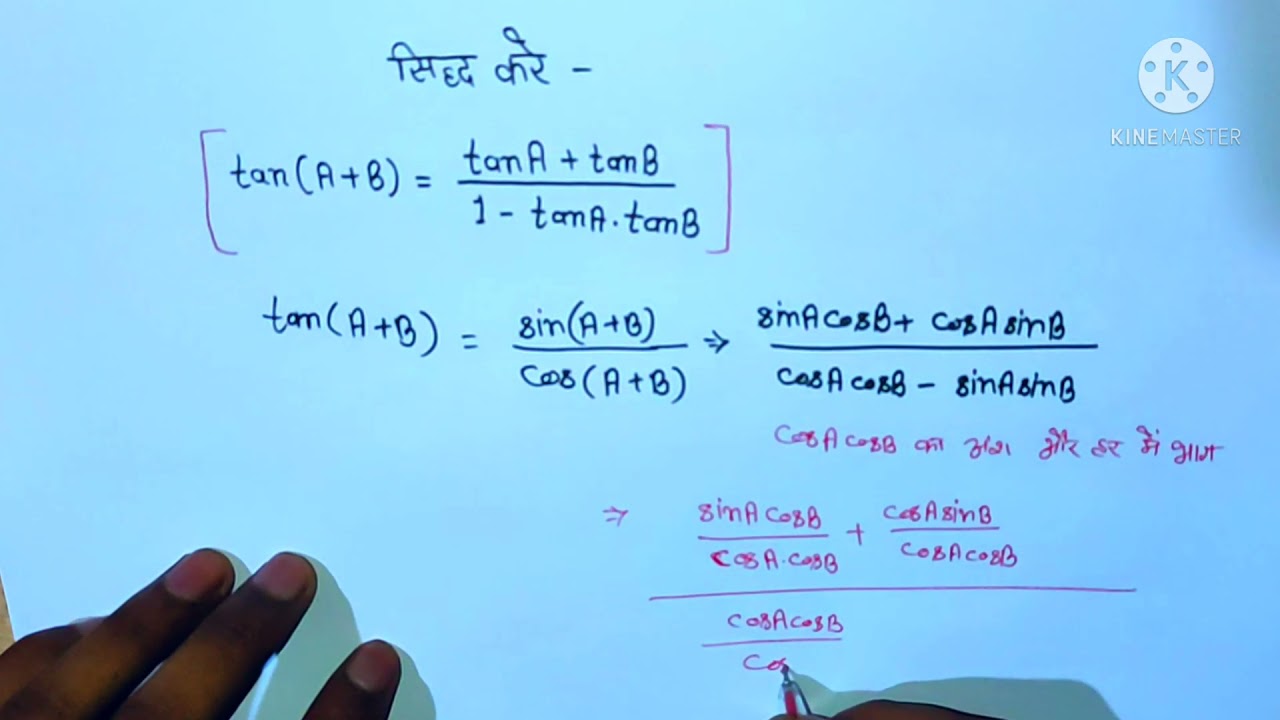 सिद्ध करे -
KINEMASTER
tan(A+B) = tanA + tanB / 1 - tanA.tanB
tan(A+B) = sin(A+B) / cos(A+B) ⇒ sinAcosB + cosAsinB / cosAcosB - sinAsinB
cosAcosB का अंश और हर में भाग
⇒ sinAcosB / cosA.cosB + cosAsinB / cosAcosB
cosAcosB
cos